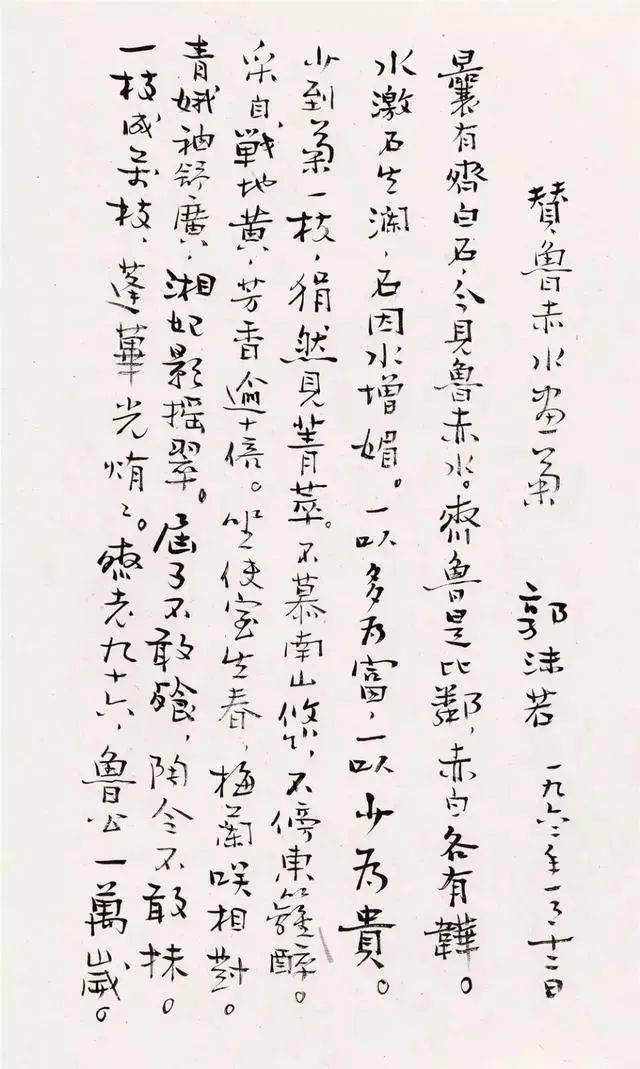 賛魯赤水画菊 郭沫若 一九六二年一月十二日
曩有齊白石，今見魯赤水。齊魯是比鄰，赤白各有韡。
水激石生瀾，石因水增媚。一以多为富，一以少为貴。
少到菊一枝，狷然見菁萃。不慕南山悠，不傍東籬醉。
采自戰地黄，芳香逾十倍。坐使室生春，梅蘭咲相對。
青娥袖舒廣，湘妃影摇翠。屈子不敢飱，陶令不敢抹。
一枝成万枝，蓬蓽光煟〻。齊老九十六，魯公一萬歲。